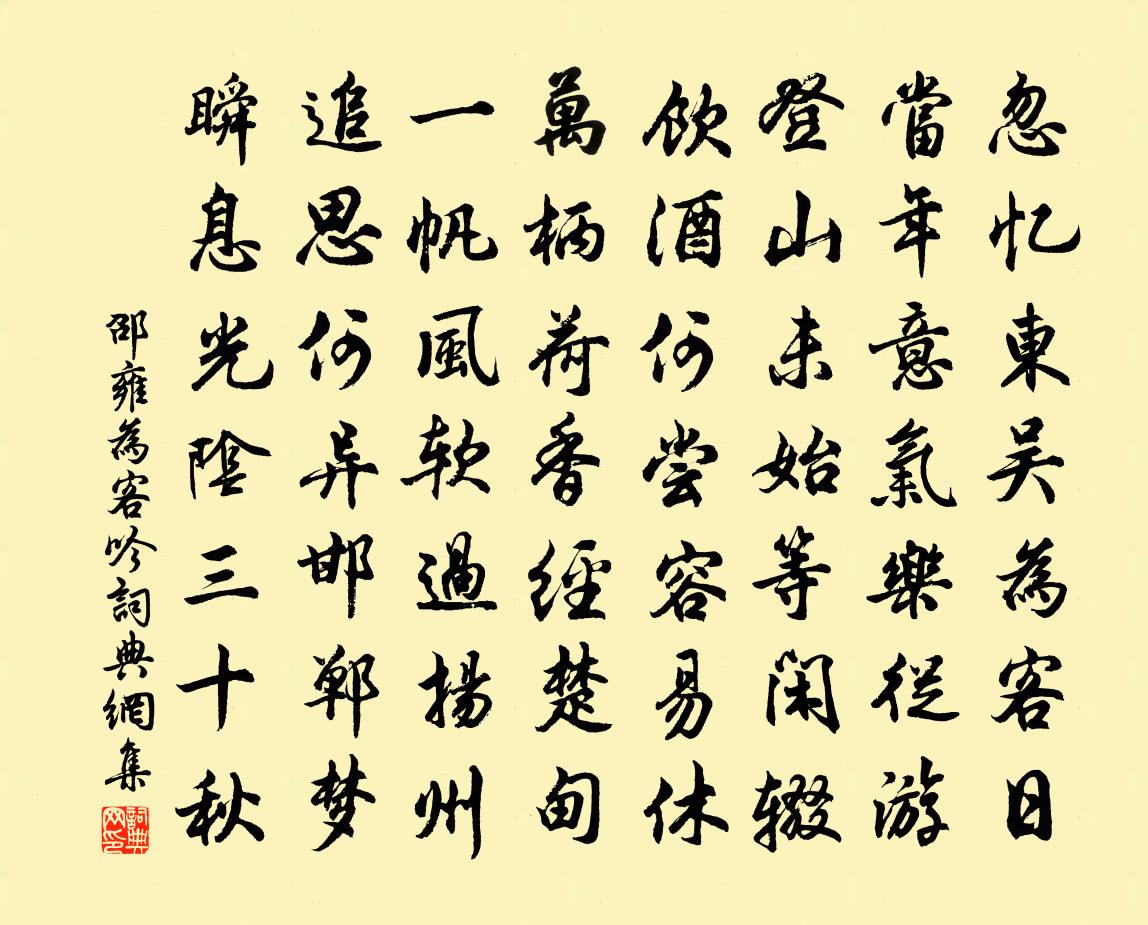 忽忆東吴為客日
當年意氣樂從游
登山未始等闲辍
飲酒何尝容易休
萬柄荷香經楚甸
一帆風软過揚州
追思何异邯鄲梦
瞬息光陰三十秋
邵雍為客吟詞典網集
詞典网印